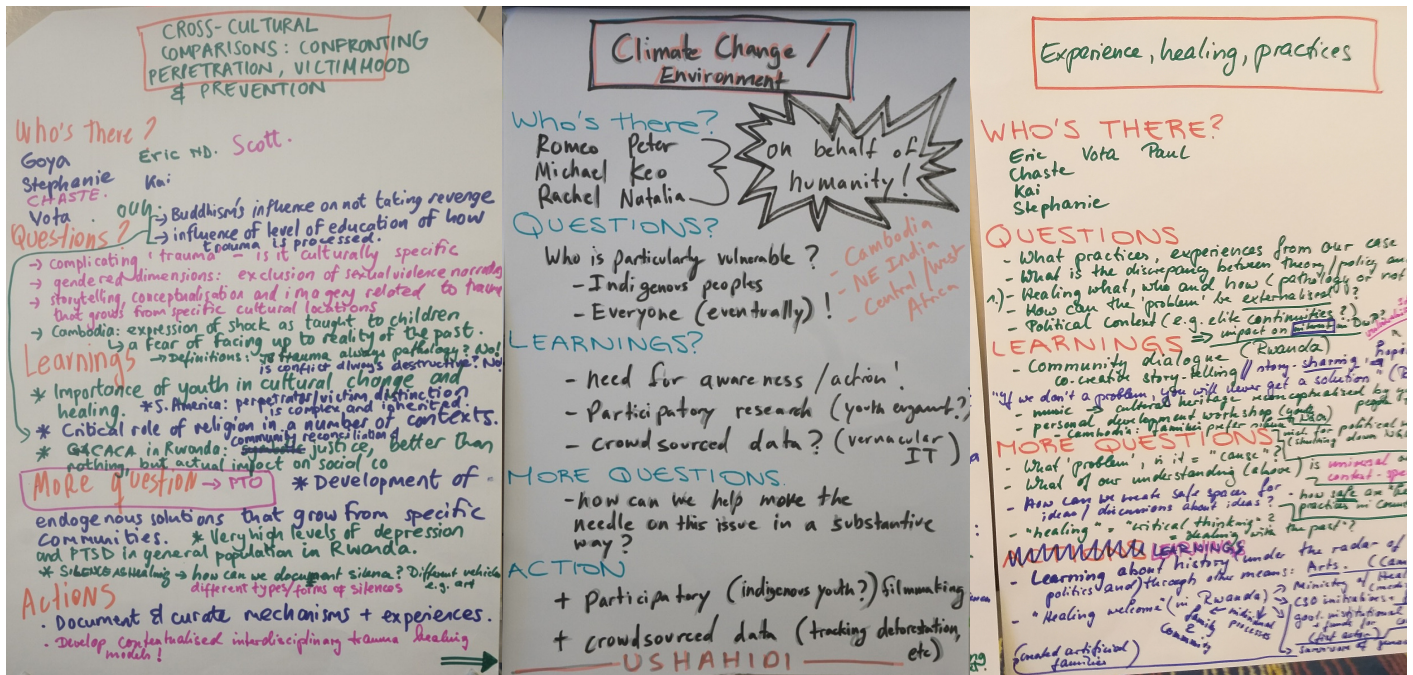 CROSS-CULTURAL
COMPARISONS: CONFRONTING
PERPETRATION, VICTIMHOOD
& PREVENTION
Who's there?
Goya
Eric ND.
Scott.
Stephanie
Kai
CHASTE.
Vota
Questions?
→ Buddhism's influence on not taking revenge
→ influence of level of education of how
trauma is processed.
→ complicating 'trauma' - is it culturally specific
→ gendered dimensions: exclusion of sexual violence
→ storytelling, conceptualisation and imagery related to
that grows from specific cultural locations
→ Cambodia: expression of shock as taught to children
↳ a fear of facing up to reality of the past.
Learnings
→ Definitions: Is trauma always pathology? No!
is conflict always destructive? No!
* Importance of youth in cultural change and
healing.
* S. America: perpetrator/victim distinction
is complex and inherited.
* Critical role of religion in a number of contexts.
* GACACA in Rwanda: community reconciliation
justice, better than
nothing, but actual impact on social co
More question → PTO
* Development of
endogenous solutions that grow from specific
communities. * Very high levels of depression
and PTSD in general population in Rwanda.
* SILENCE AS Healing → how can we document silence? Different vehicles
different types/forms of silences
e.g. art
Actions
· Document & curate mechanisms + experiences.
· Develop contextualised interdisciplinary trauma healing
models!
Climate Change /
Environment
Who's there?
Romeo Peter
Michael Keo
Rachel Natalia
on behalf of
humanity!
QUESTIONS?
Who is particularly vulnerable?
- Indigenous peoples
- Everyone (eventually)!
- Cambodia
- NE India
- Central/West
Africa
LEARNINGS?
- need for awareness/action!
- Participatory research (youth engamt?)
- crowdsourced data? (vernacular
IT)
MORE QUESTIONS.
- how can we help move the
needle on this issue in a substantive
way?
ACTION
+ Participatory (indigenous youth?) filmmaking
+ crowdsourced data (tracking deforestation,
etc)
USHAHIDI
Experience, healing, practices
WHO'S THERE?
Eric Vota Paul
Chaste
Kai
Stephanie
QUESTIONS
- What practices, experiences from our case
- What is the discrepancy between theory/policy
1.) - Healing what, who and how (pathology or not
- How can the 'problem' be externalised?
- Political context (e.g. elite continuities?)
⇒ impact on
LEARNINGS
- Community dialogue (Rwanda)
co-creative story-telling // story-sharing
"If we don't a problem, you will never get a solution"
- music → cultural heritage reconceptualised by
- personal development workshop
- Cambodia: families prefer
MORE QUESTIONS
- What 'problem', is it = "cause"?
- What of our understanding (above) is universal
context-
- How can we create safe spaces for
ideas / discussions about ideas?
- how safe are
practices in
- "healing" = "critical thinking"?
= dealing with the past"?
LEARNINGS
- Learning about history under the radar of
politics and through other means: Arts.
- "Healing welcome" (in Rwanda)
→ Ministry of
CSO initiatives
family
&
community
individual
processes
(created artificial
families)